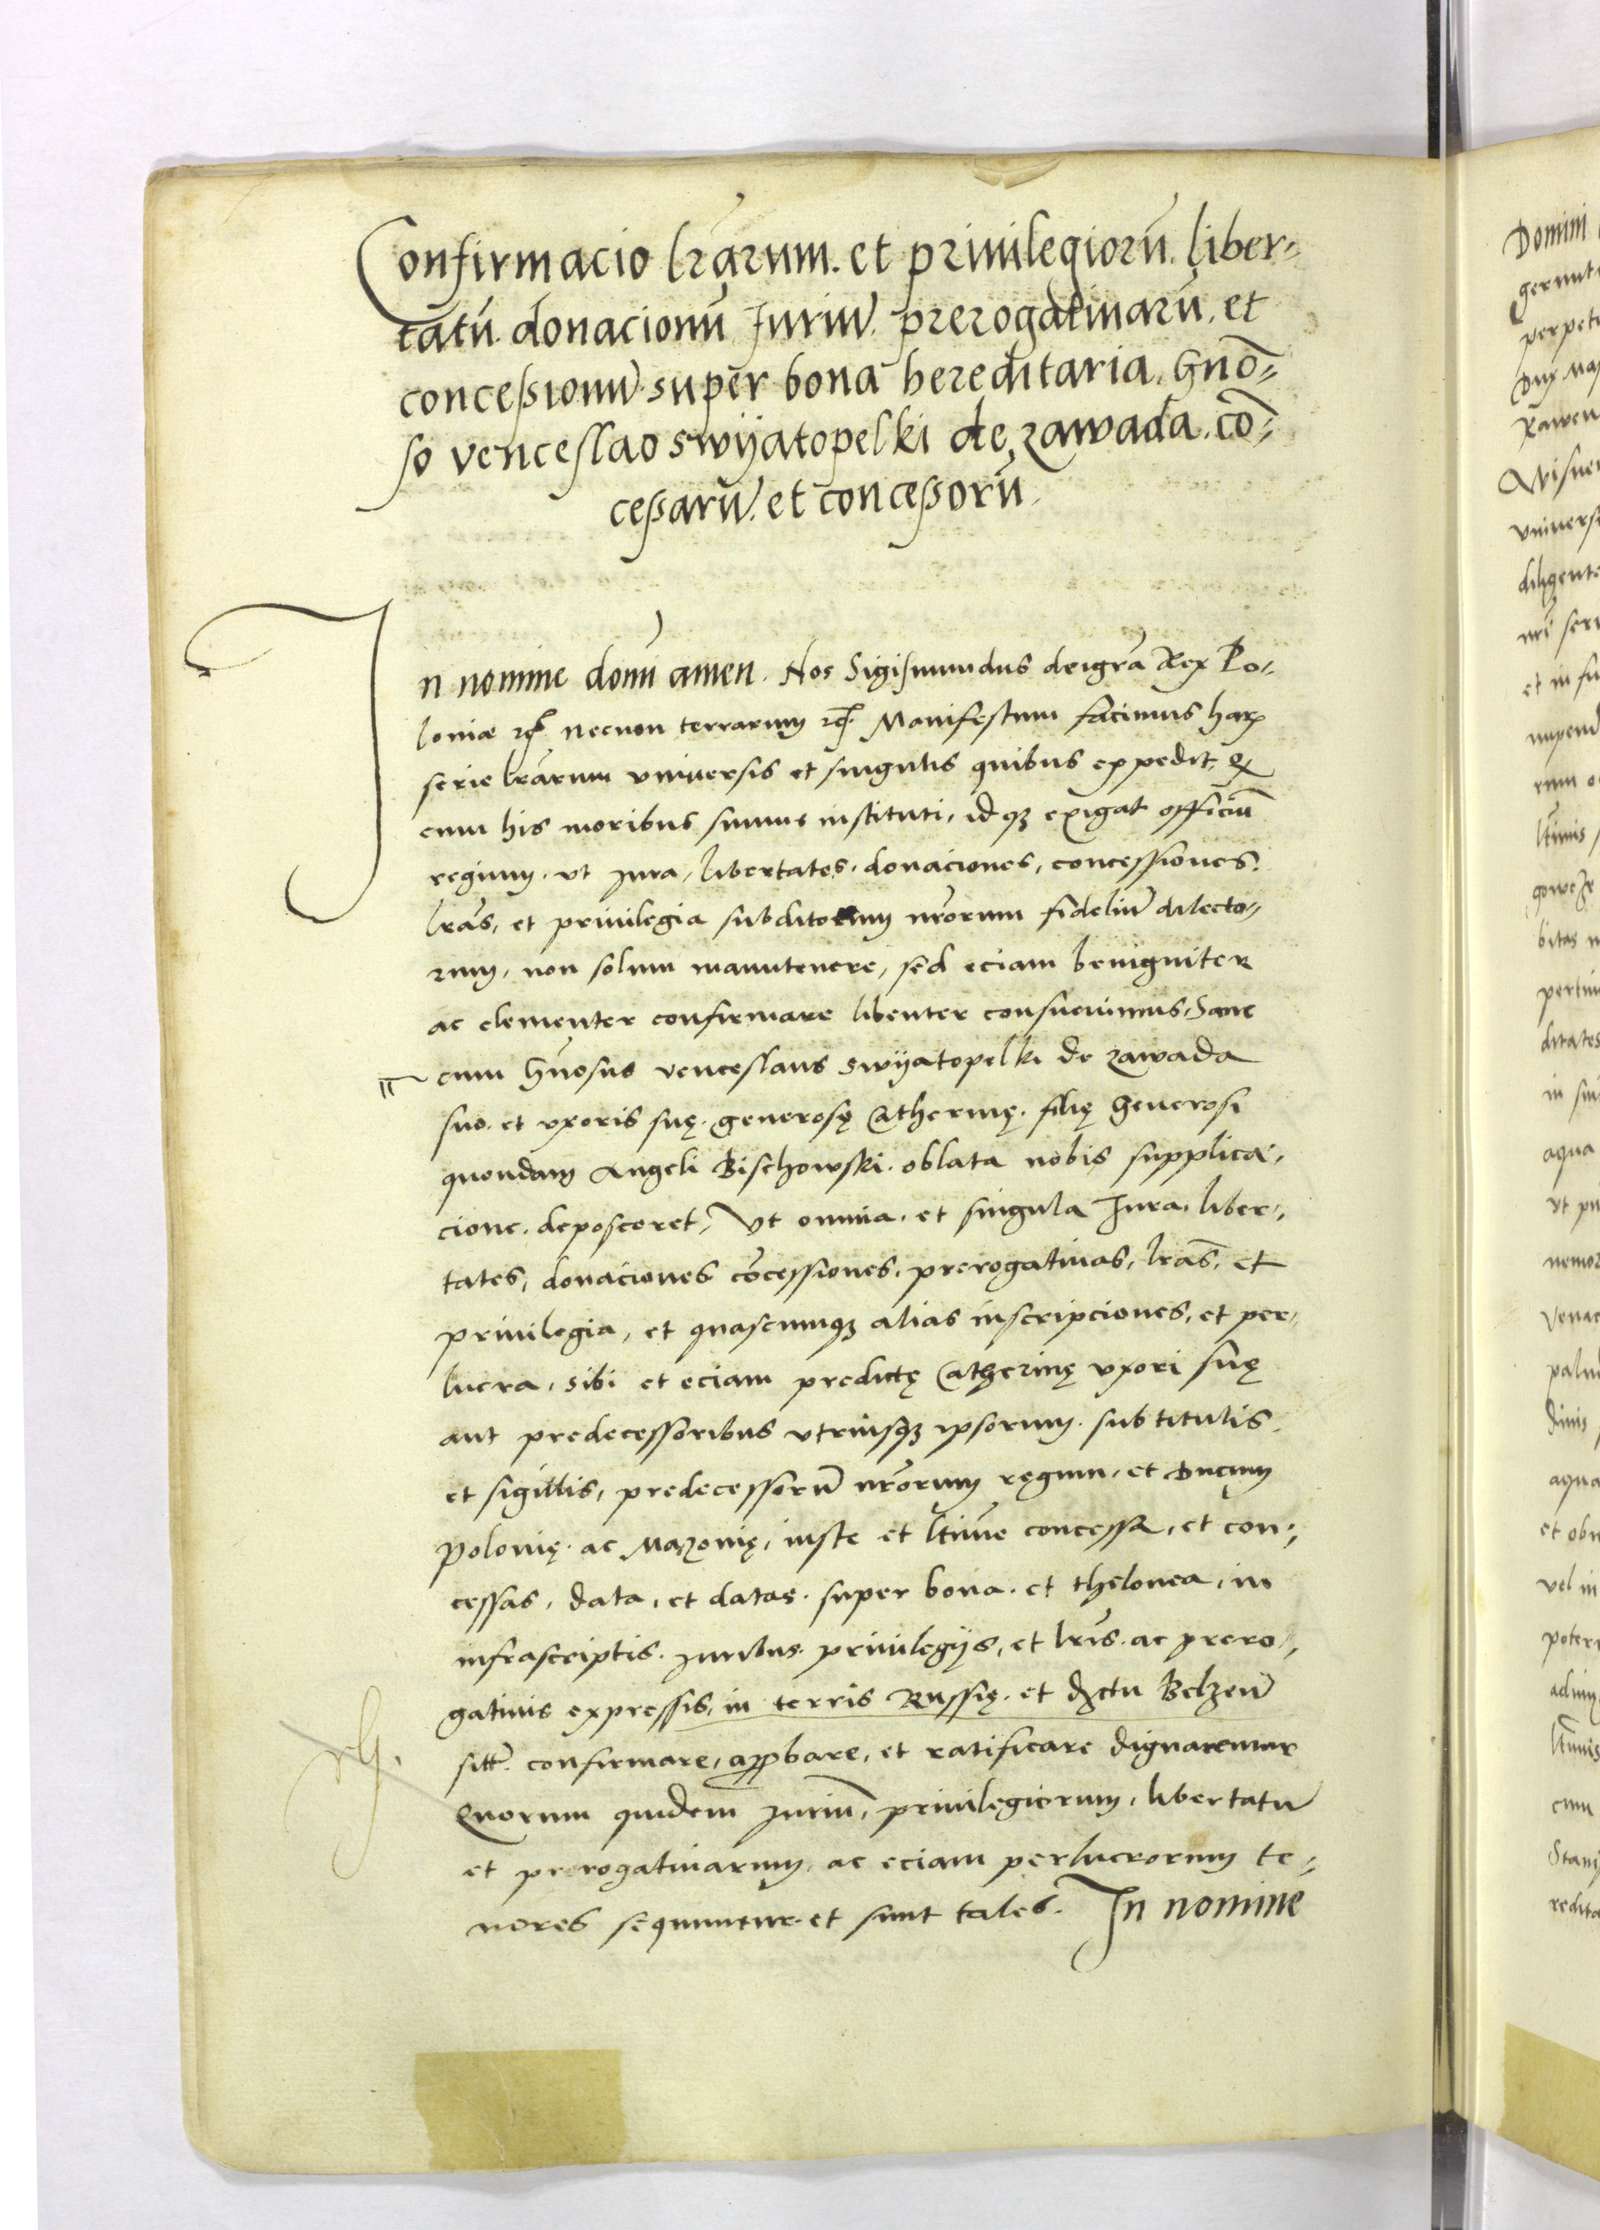 Confirmacio lr̃arum. et priuilegiorũ. liber-
tatũ. donacionũ Juriũ. prerogatiuarũ. et
conceßionũ. super bona hereditaria. Gnõ-
so venceslao swÿatopelki de zawada. cõ-
ceßarũ. et conceßorũ.
In nomine domĩ amen. Nos Sigismundus dei gr̃a Rex Po-
loniæ necnon terrarum Manifestum facimus harum
serie lr̃arum vniuersis et singulis quibus expedit,
cum his moribus sumus instituti, idqꝫ exigat officiũ
regium. vt Jura, libertates. donaciones, concessiones.
lr̃as, et priuilegia subditorum nr̃orum fideliũ dilecto-
rum, non solum manutenere, sed eciam benigniter
ac clementer confirmare libenter consueuimus, Sane
cum Gn̄osus venceslaus swÿatopelki de zawada
suo. et vxoris suę. generosę Catherinę. filię Generosi
quondam Angeli Bischowski. oblata nobis supplica-
cione. deposceret, Vt omnia. et singula Jura. liber-
tates, donaciones cõcessiones, prerogatiuas, lr̃as, et
priuilegia, et quascumqꝫ alias inscripciones, et per-
lucra, sibi et eciam predictę Catherinę vxori suę
aut predecessoribus vtriusqꝫ ipsorum. sub titulis
et sigillis, predecessorũ nr̃orum regum, et Ducum
Polonię. ac Mazouię, iuste et ltĩme concessa, et con-
cessas, data, et datas. super bona. et thelonea, in
infrascriptis. Juribus. priuilegijs, et lr̃is. ac prero-
gatiuis expressis, in terris Russię. et dẜctu Belzeñ
sitt̃. confirmare, approbare, et ratificare dignaremur
Quorum quidem Juriũ, priuilegiorum, libertatũ
et prerogatiuarum, ac eciam perlucrorum te-
nores sequuntur. et sunt tales. In nomine